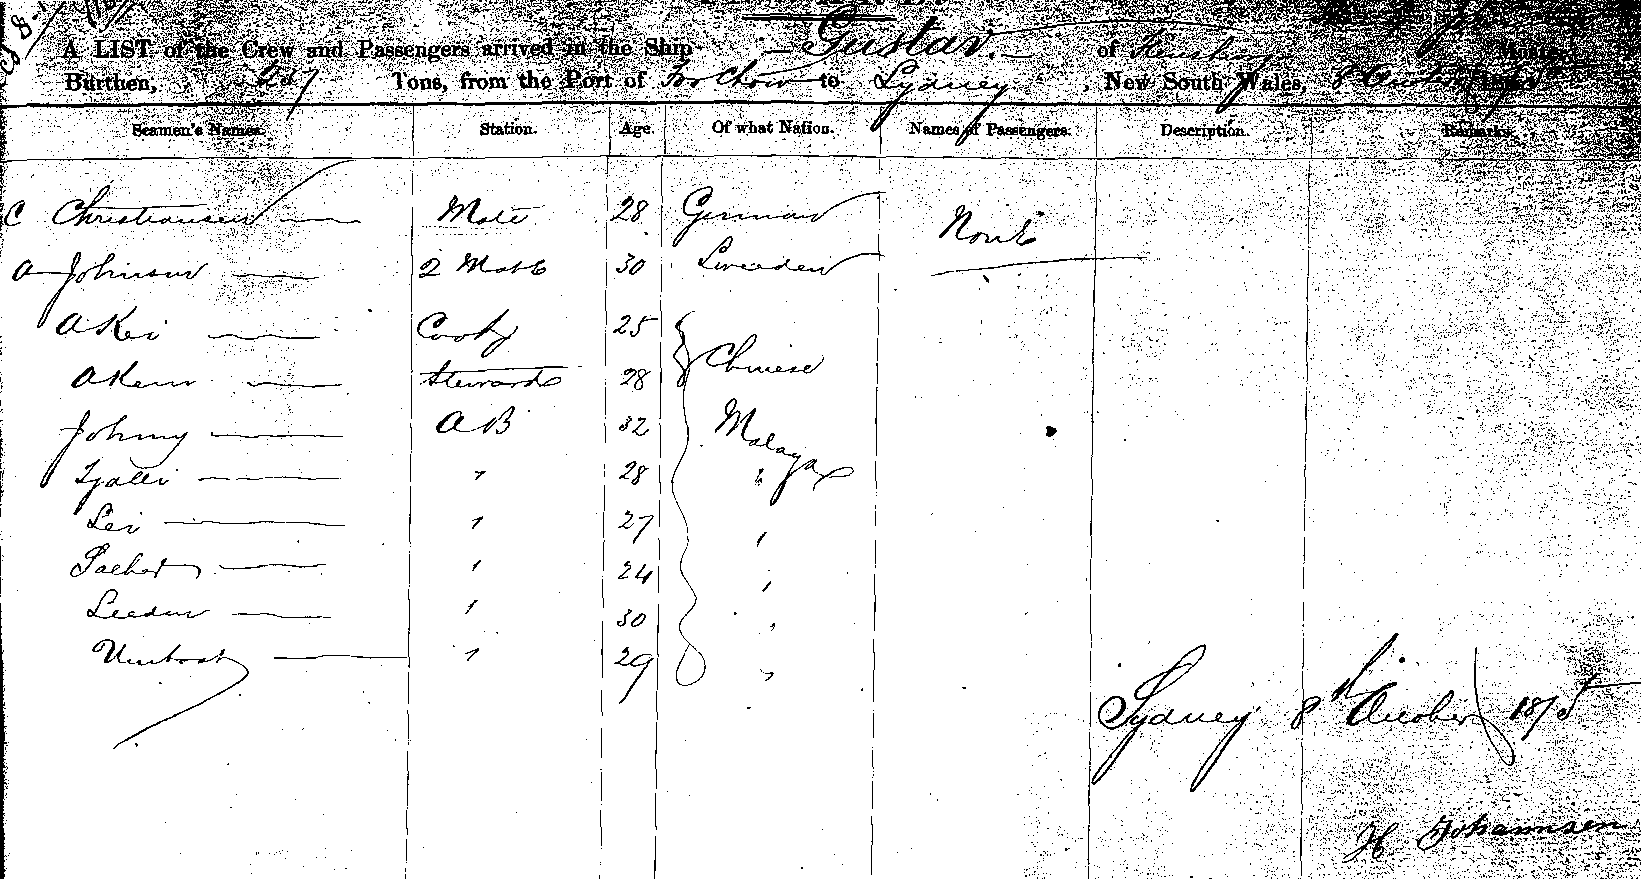 A LIST of the Crew and Passengers arrived in the Ship Gustav. of
Burthen, 257 Tons, from the Port of Foo Chow to Sydney, New South Wales, 8 October
Seamen's Names. Station. Age. Of what Nation. Names of Passengers. Description. Remarks.
C Christiansen — Mate 28 German None
A Johnson — 2 Mate 30 Sweeden
AKei — Cook 25
AKem — Steward 28 Chinese
Johnny — A B 32 Malaga
Tjalli — " 28 "
Lei — " 27 "
— " 24 "
Leeden — " 30 "
— " 29 "
Sydney 8th October 1875
H Johannsen